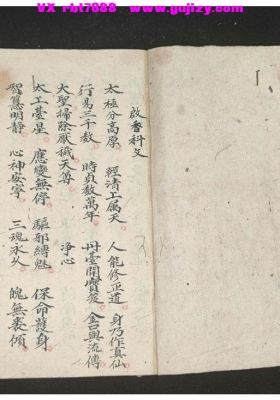 VX rbt7888 www.gujizy.com
啟香科文
太極分高原 輕清上属天 人能修正道 身乃作真仙
行易三千数 時貞数萬年 丹臺開寶笈 金口與流傳
大聖掃除厭穢天尊 净心
太上臺星 應變無停 驅邪縛魅 保命護身
智慧明静 心神安寧 三魂永久 魄無丧傾